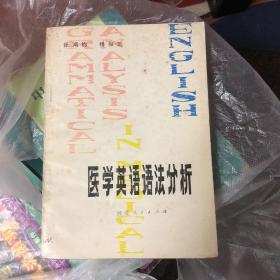 GRAMMATICAL
ANALYSIS
IN MEDICAL
ENGLISH
医学英语语法分析